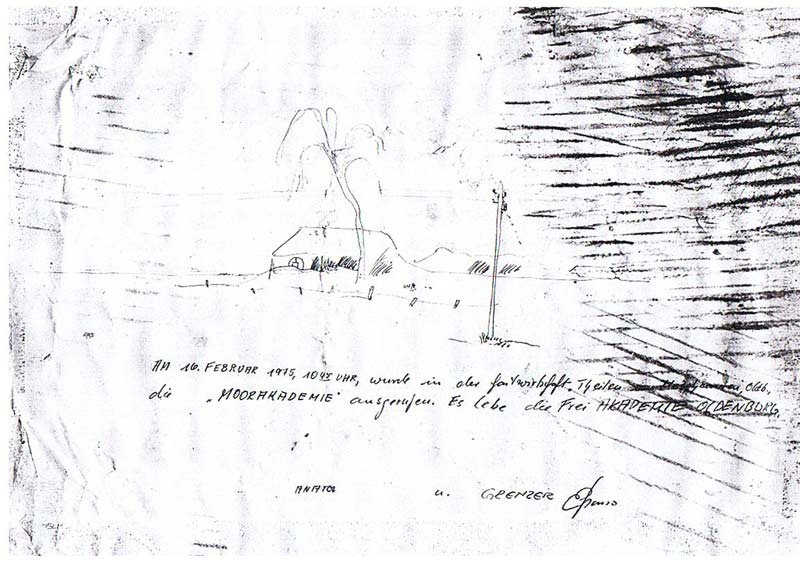 AM 16. FEBRUAR 1975, 10 45 UHR, wurde in der Gastwirtschaft Theilen Oldb.
die „MOORAKADEMIE" ausgerufen. Es lebe die Frei AKADEMIE OLDENBURG.
ANATOL u. GRENZER